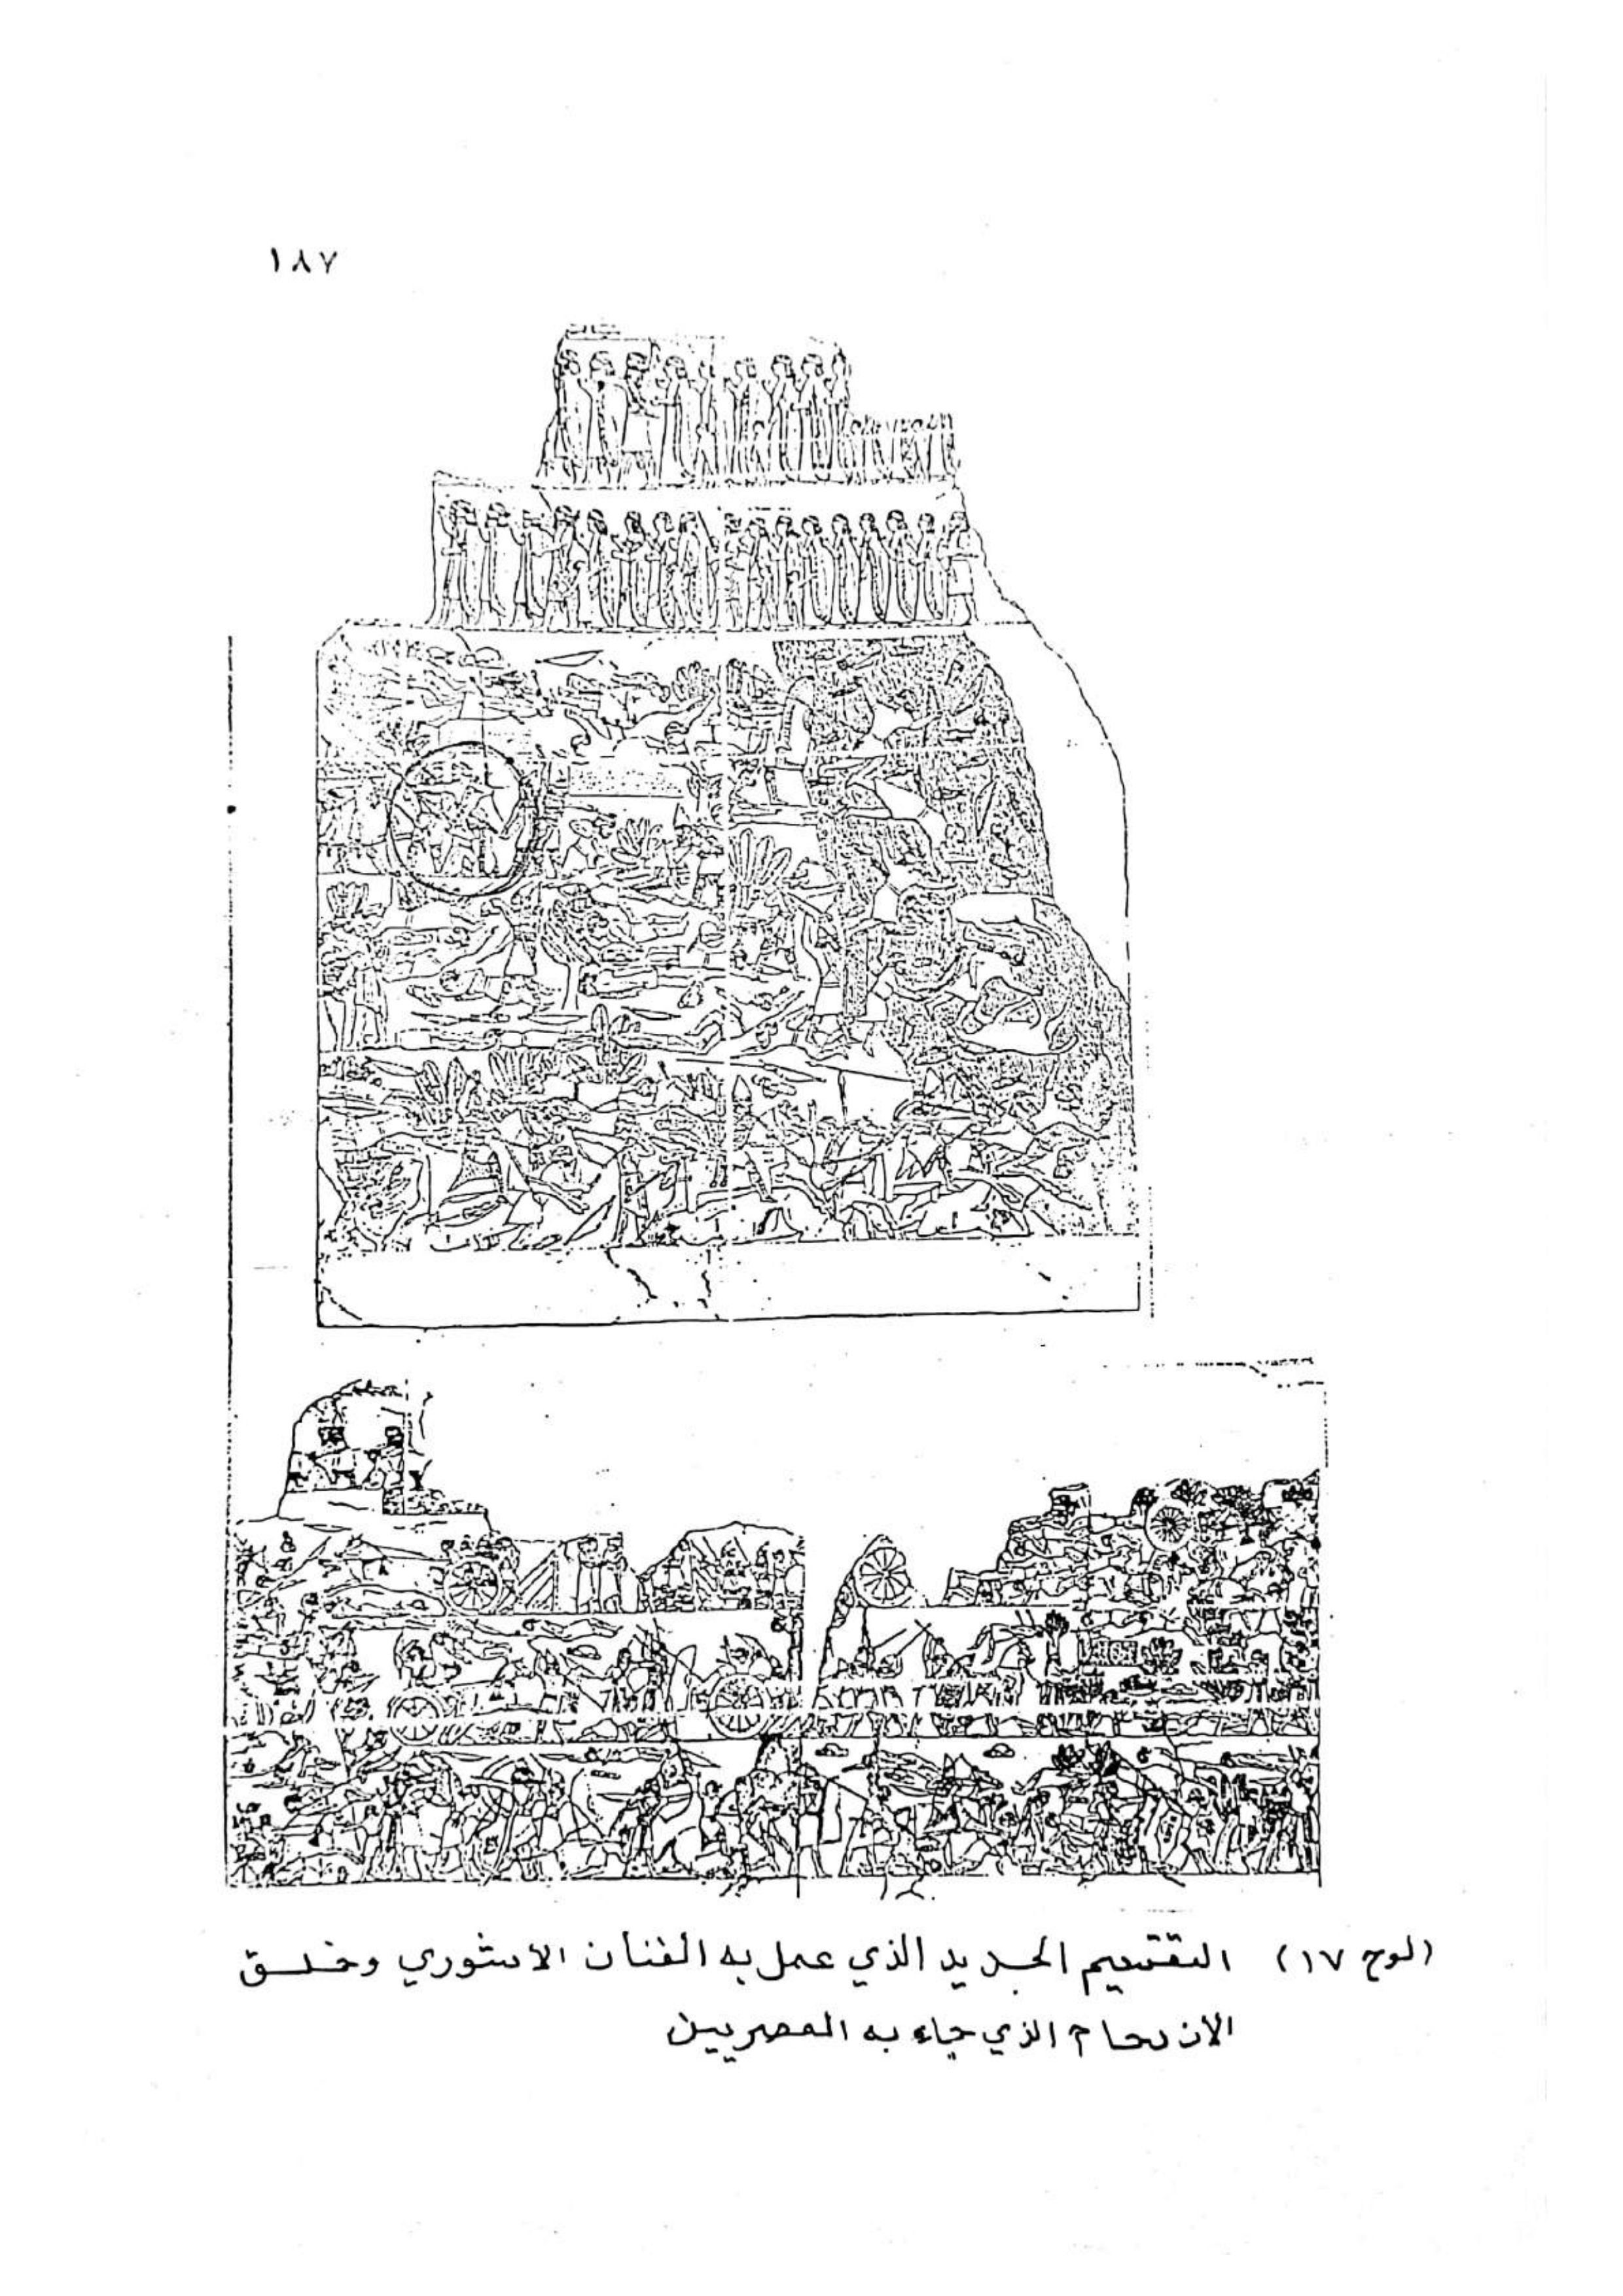 ١٨٧
(لوح ١٧) التقسيم الجديد الذي عمل به الفنان الاشوري وخلق
الازدحام الذي جاء به المصريين